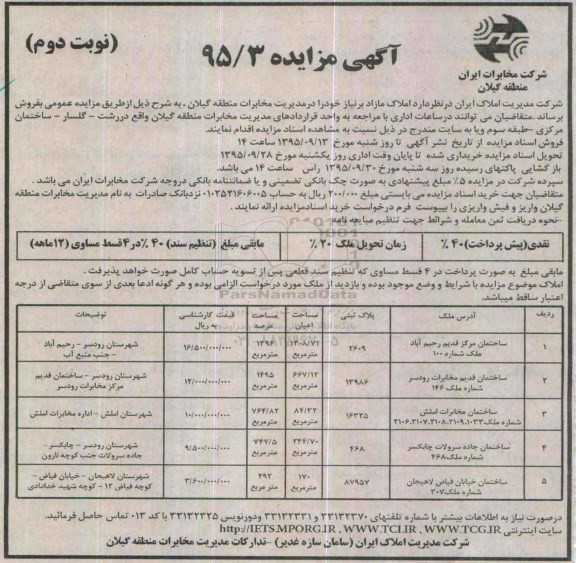 شرکت مخابرات ایران
منطقه گیلان
آگهی مزایده ۹۵/۳
(نوبت دوم)
شرکت مدیریت املاک ایران درنظردارد املاک مازاد برنیاز خودرا درمدیریت مخابرات منطقه گیلان ، به شرح ذیل ازطریق مزایده عمومی بفروش
برساند .متقاضیان می توانند درساعات اداری با مراجعه به واحد قراردادهای مدیریت مخابرات منطقه گیلان واقع دررشت - گلسار - ساختمان
مرکزی -طبقه سوم ویا به سایت مندرج در ذیل نسبت به مشاهده اسناد مزایده اقدام نمایند.
فروش اسناد مزایده از تاریخ نشر آگهی تا روز شنبه مورخ ۱۳۹۵/۰۹/۱۳ ساعت ۱۴
تحویل اسناد مزایده خریداری شده تا پایان وقت اداری روز یکشنبه مورخ ۱۳۹۵/۰۹/۲۸
باز گشایی پاکتهای رسیده روز سه شنبه مورخ ۱۳۹۵/۰۹/۳۰ راس ساعت ۱۴ می باشد.
سپرده شرکت در مزایده ۵٪ مبلغ پیشنهادی به صورت چک بانکی تضمینی و یا ضمانتنامه بانکی دروجه شرکت مخابرات ایران می باشد .
متقاضیان جهت خرید اسناد مزایده می بایستی مبلغ ۲۰۰/۰۰۰ ریال به حساب نزدبانک صادرات به نام مدیریت مخابرات منطقه
گیلان واریز و فیش واریزی را بپیوست فرم درخواست خرید اسنادمزایده ارائه نمایند .
-نحوه دریافت ثمن معامله و شرائط جهت تنظیم مبایعه نامه
نقدی(پیش پرداخت) ۴۰ ٪ زمان تحویل ملک ۲۰ ٪ مابقی مبلغ (تنظیم سند) ۴۰ ٪در۴قسط مساوی (۱۲ماهه)
مابقی مبلغ به صورت پرداخت در ۴ قسط مساوی که تنظیم سند قطعی پس از تسویه حساب کامل صورت خواهد پذیرفت .
املاک موضوع مزایده با شرایط و وضع موجود بوده و بازدید از ملک مورد درخواست الزامی بوده و هر گونه ادعا بعدی از سوی متقاضی از درجه
اعتبار ساقط میباشد.
ردیف آدرس ملک پلاک ثبتی مساحت اعیان مساحت عرصه قیمت کارشناسی به ریال توضیحات
۱ ساختمان مرکز قدیم رحیم آباد ملک شماره ۱۰۰ ۲۶۰۹ ۱۳۰۸/۷۲ مترمربع ۱۳۹۴ مترمربع ۱۶/۵۰۰/۰۰۰/۰۰۰ شهرستان رودسر - رحیم آباد - جنب منبع آب
۲ ساختمان قدیم مخابرات رودسر شماره ملک ۱۴۶ ۱۳۹۸۶ ۶۶۷/۱۲ مترمربع ۱۴۹۵ مترمربع ۱۲/۰۰۰/۰۰۰/۰۰۰ شهرستان رودسر - ساختمان قدیم مرکز مخابرات رودسر
۳ ساختمان مخابرات املش شماره ملک ۱۰۳۳،۲۱۰۹،۲۱۰۸،۲۱۰۷،۲۱۰۶ ۱۶۳۳۵ ۸۴/۳۲ مترمربع ۷۶۴/۸۲ مترمربع ۱۰/۰۰۰/۰۰۰/۰۰۰ شهرستان املش - اداره مخابرات املش
۴ ساختمان جاده سرولات چابکسر شماره ملک۴۶۸ ۴۶۸ ۲۴۴/۷۰ مترمربع ۷۴۷/۵ مترمربع ۹/۵۰۰/۰۰۰/۰۰۰ شهرستان رودسر - چابکسر- جاده سرولات جنب کوچه نارون
۵ ساختمان خیابان فیاض لاهیجان شماره ملک۳۰۷ ۸۷۹۵۷ ۱۷۰ مترمربع ۴۹۳ مترمربع ۳/۶۰۰/۰۰۰/۰۰۰ شهرستان لاهیجان - خیابان فیاض - کوچه فیاض ۱۲ - کوچه شهید خدادادی
درصورت نیاز به اطلاعات بیشتر با شماره تلفنهای ۳۳۱۳۲۳۷۰ و ۳۳۱۳۲۳۳۱ ودورنویس ۳۳۱۳۲۳۲۵ با کد ۰۱۳ تماس حاصل فرمائید.
سایت اینترنتی http://IETS.MPORG.IR , WWW.TCI.IR, WWW.TCG.IR
شرکت مدیریت املاک ایران (سامان سازه غدیر) -تدارکات مدیریت مخابرات منطقه گیلان
ParsNamadData